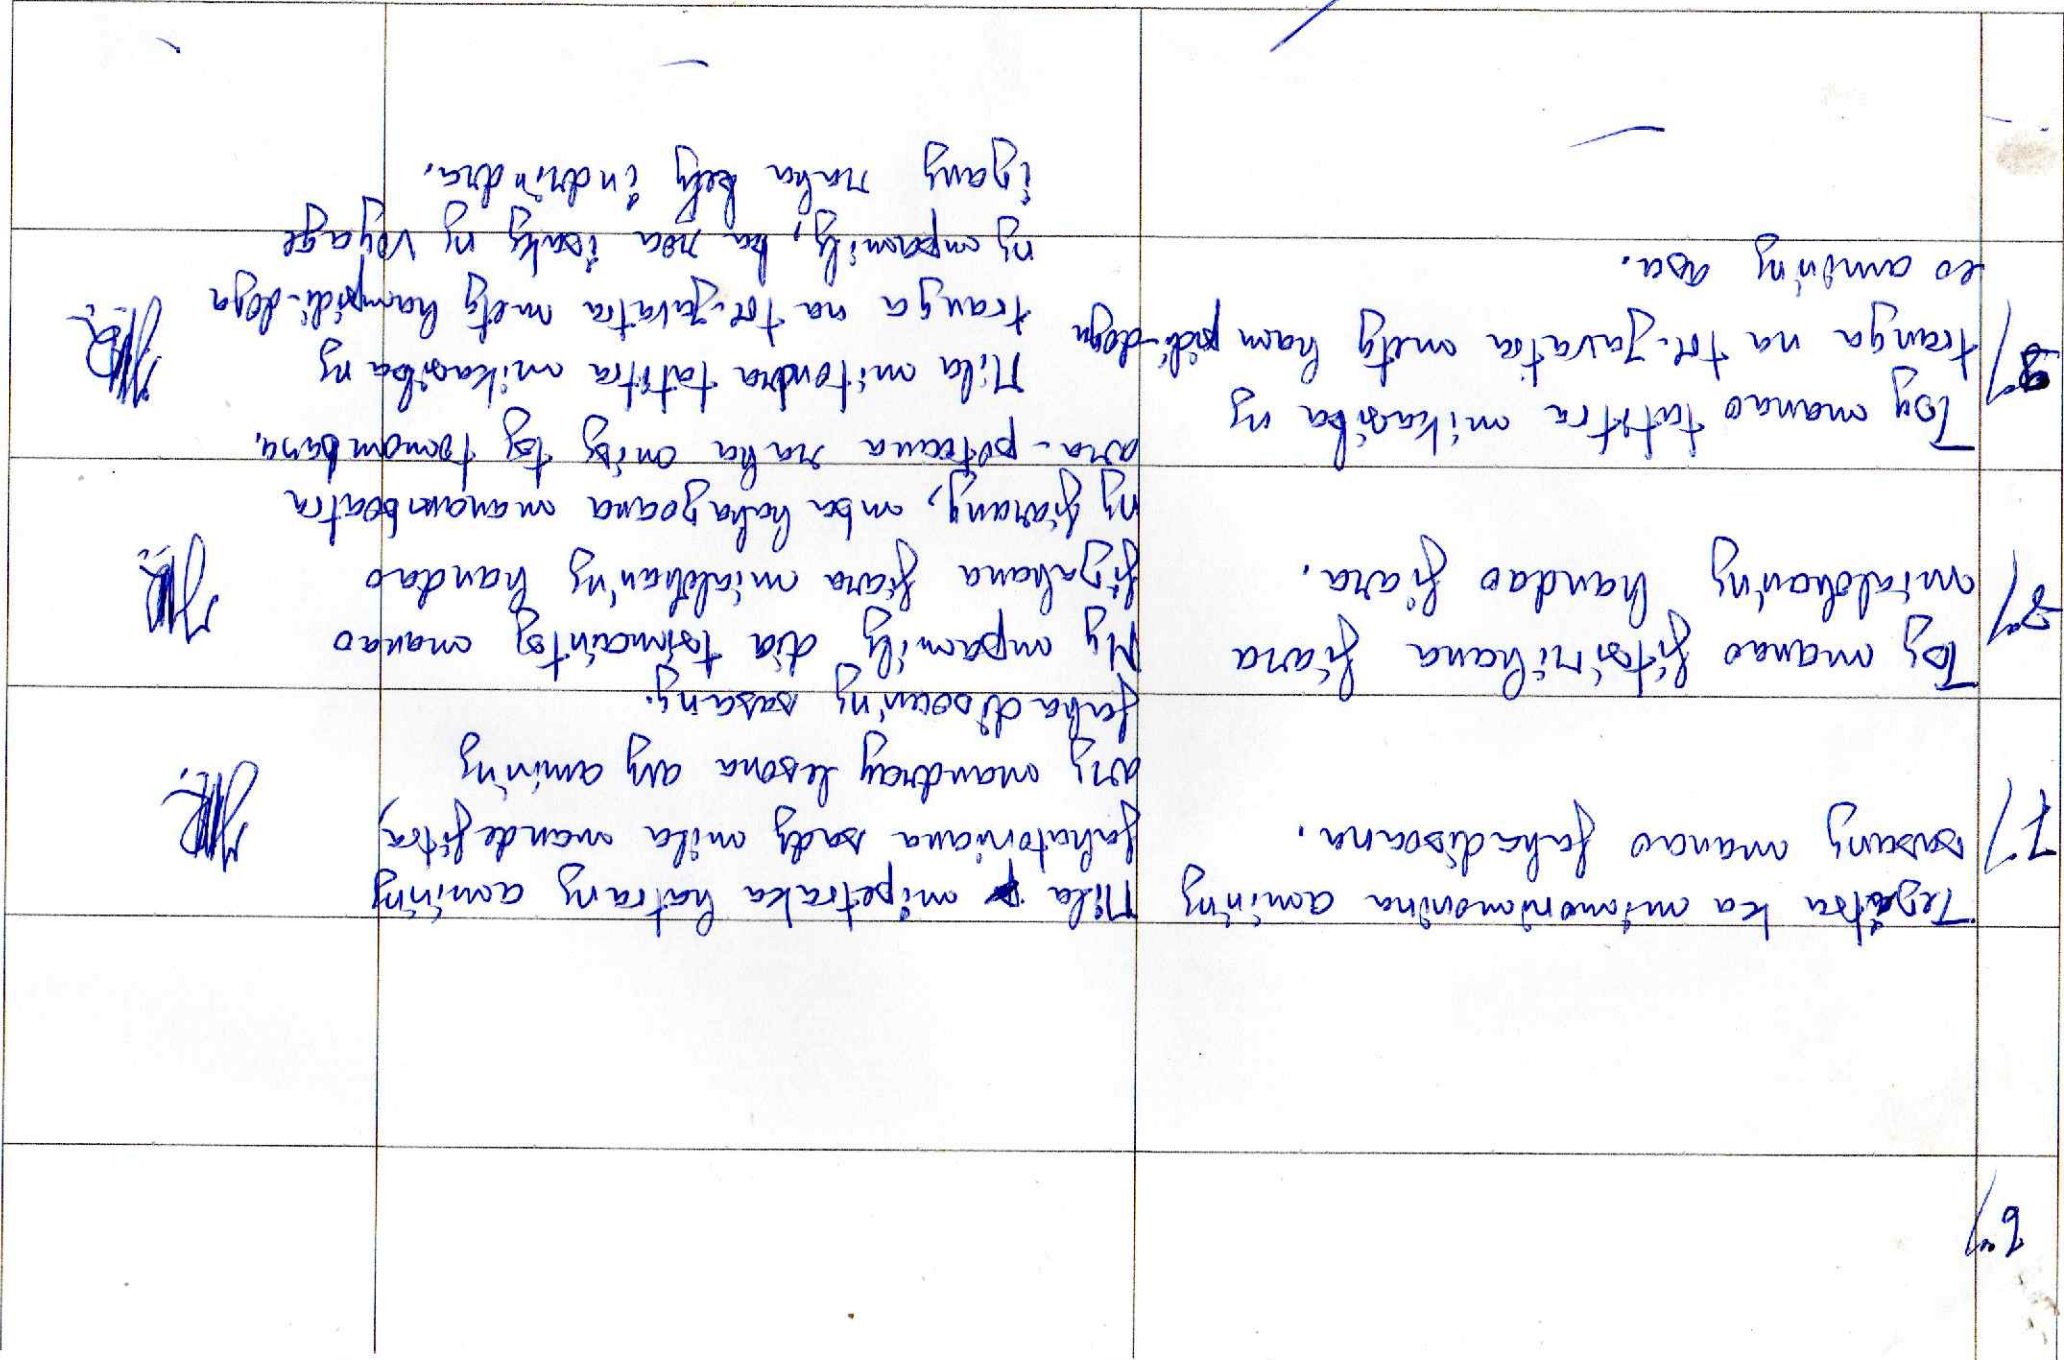 6°/
7°/
Tezitra ka mimonimonina amin'ny
sasany manao fahadisoana.
Mila mipetraka hatrany amin'ny
fahatoniana sady mila mandefitra,
ary mandray lesona avy amin'ny
fahadisoan'ny sasany.
8°/
Tsy manao fitsirihana fiara
mialohan'ny handao fiara.
Ny mpamily dia tsimaintsy manao
fizahana fiara mialohan'ny handao
ny fiarany, mba hahazoana manamboatra
ara-potoana raha misy tsy tomombana.
9°/
Tsy manao tatitra mikasika ny
tranga na toe-javatra mety hampidi-doza
eo amin'ny asa.
Mila mitondra tatitra mikasika ny
tranga na toe-javatra mety hampidi-doza
ny mpamily, ka isaky ny voyage
izany raha kely indrindra.